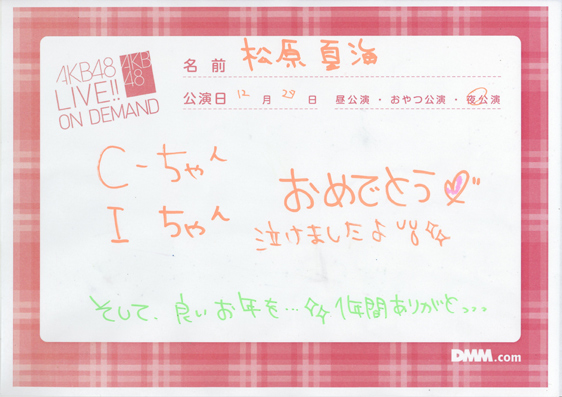 AKB48
LIVE!!
ON DEMAND
AKB
48
名前 松原夏海
公演日 12月29日 昼公演・おやつ公演・夜公演
C-ちゃん
I ちゃん
おめでとう
泣けましたよ
そして、良いお年を… 1年間ありがと、、、
DMM.com